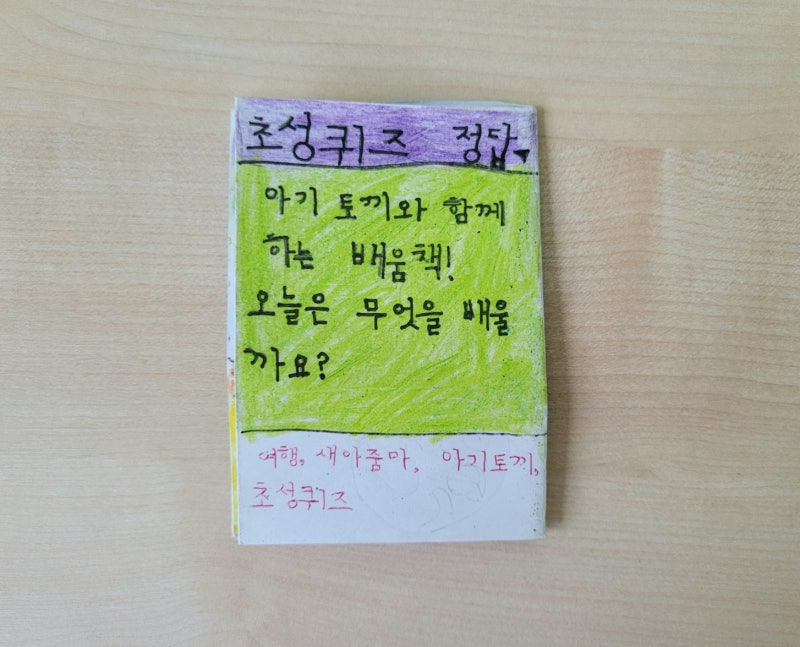 초성퀴즈 정답
아기 토끼와 함께
하는 배움책!
오늘은 무엇을 배울
까요?
여행, 새아줌마, 아기토끼,
초성퀴즈